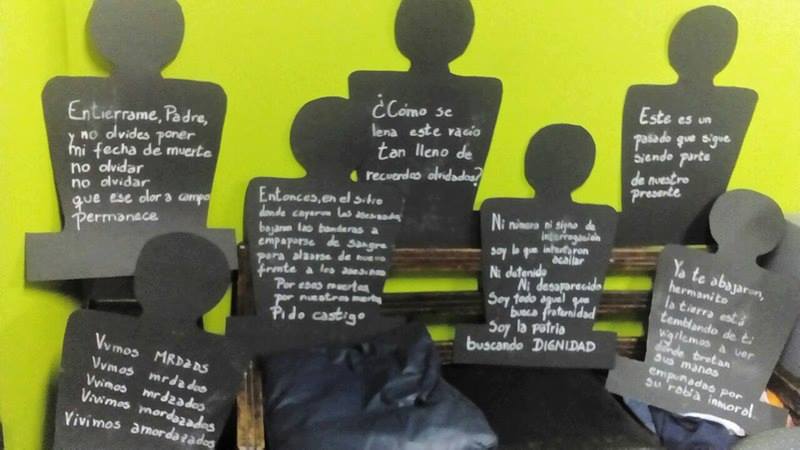 Entiérrame, Padre,
y no olvides poner
mi fecha de muerte
no olvidar
no olvidar
que ese olor a campo
permanece
¿Cómo se
llena este vacio
tan lleno de
recuerdos olvidados?
Este es un
pasado que sigue
siendo parte
de nuestro
presente
Entonces, en el sitio
donde cayeron los asesinados
bajaron las banderas a
empaparse de sangre
para alzarse de nuevo
frente a los asesinos
Por esos muertos
por nuestros muertos
Pido castigo
Ni número ni signo de
interrogación
soy lo que intentaron
acallar
Ni detenido
Ni desaparecido
Soy todo aquel que
busca fraternidad
Soy la patria
buscando DIGNIDAD
Ya te abajaron,
hermanito
la tierra está
temblando de ti
vigilemos a ver
dónde brotan
sus manos
empuñadas por
su rabia inmoral.
Vvmos MRDZDS
Vvmos mrdzados
Vvimos mrdzados
Vivimos mordazados
Vivimos amordazados